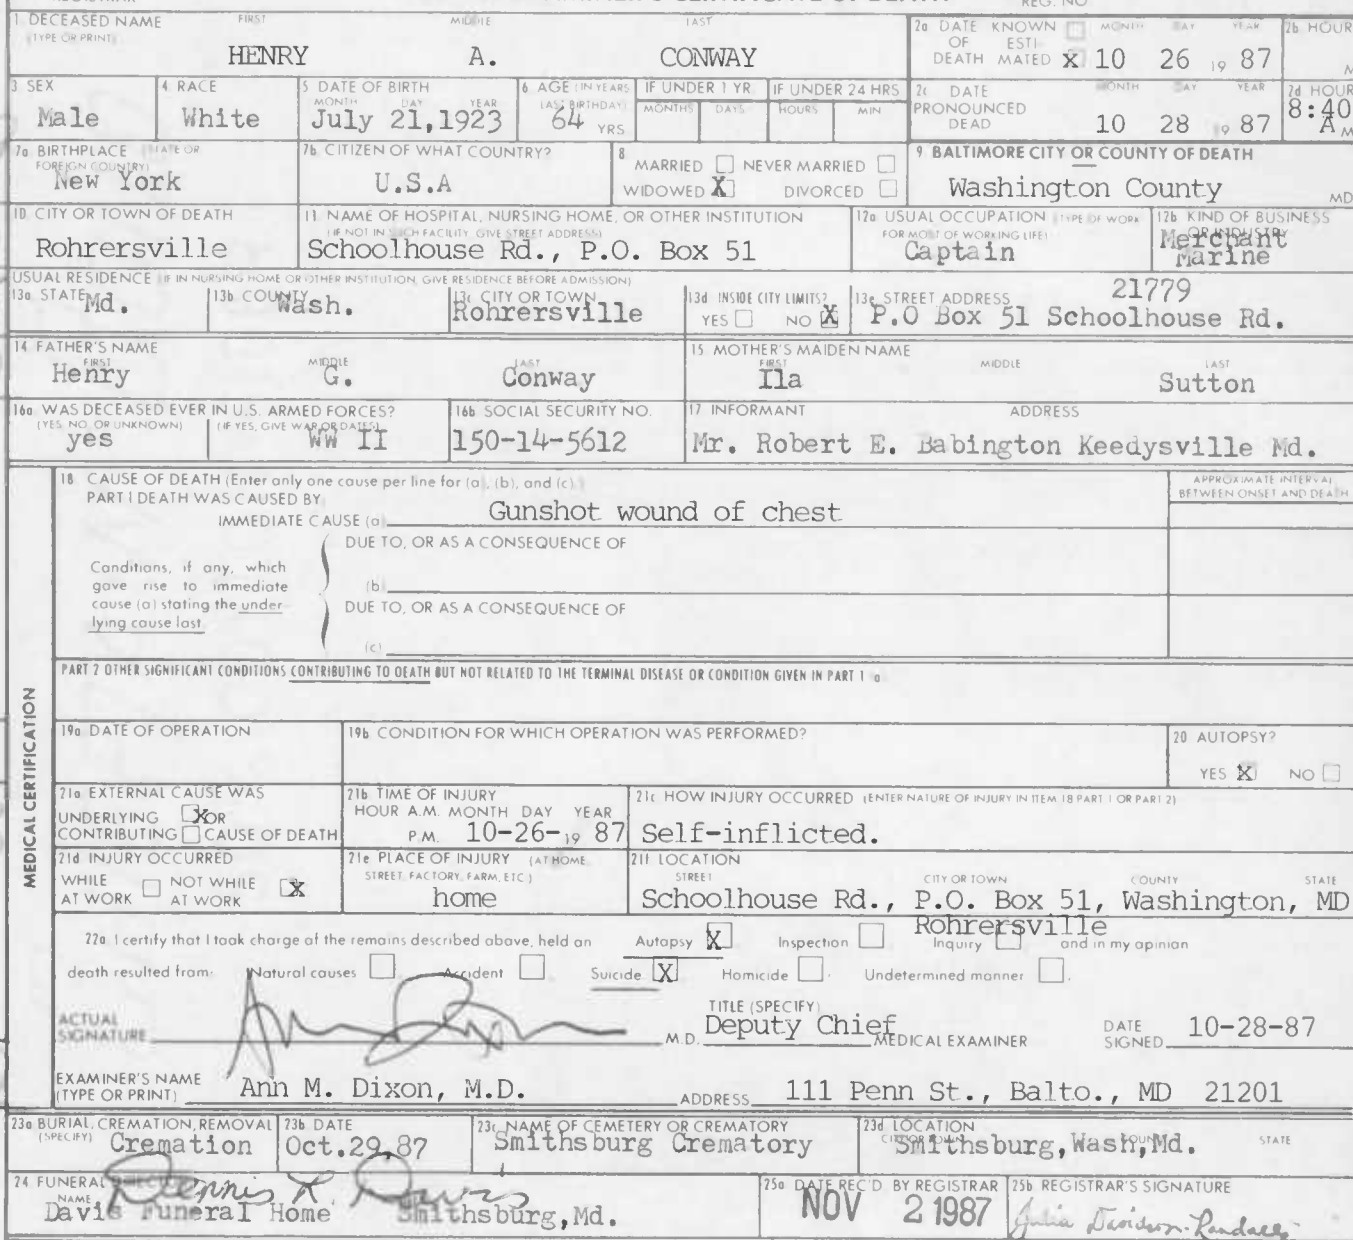 CERTIFICATE OF DEATH
REG. NO
1 DECEASED NAME FIRST MIDDLE LAST
(TYPE OR PRINT)
HENRY A. CONWAY
2a DATE KNOWN MONTH DAY YEAR
OF ESTI-
DEATH MATED X 10 26 19 87
2b HOUR
M
3 SEX
Male
4 RACE
White
5 DATE OF BIRTH
MONTH DAY YEAR
July 21,1923
6 AGE (IN YEARS
LAST BIRTHDAY)
64 YRS
IF UNDER 1 YR
MONTHS DAYS
IF UNDER 24 HRS
HOURS MIN
2c DATE MONTH DAY YEAR
PRONOUNCED
DEAD 10 28 19 87
2d HOUR
8:40
A M
7a BIRTHPLACE (STATE OR
FOREIGN COUNTRY)
New York
7b CITIZEN OF WHAT COUNTRY?
U.S.A
8
MARRIED NEVER MARRIED
WIDOWED X DIVORCED
9 BALTIMORE CITY OR COUNTY OF DEATH
Washington County MD
10 CITY OR TOWN OF DEATH
Rohrersville
11 NAME OF HOSPITAL, NURSING HOME, OR OTHER INSTITUTION
(IF NOT IN SUCH FACILITY, GIVE STREET ADDRESS)
Schoolhouse Rd., P.O. Box 51
12a USUAL OCCUPATION (TYPE OF WORK
FOR MOST OF WORKING LIFE)
Captain
12b KIND OF BUSINESS
OR INDUSTRY
Merchant
Marine
USUAL RESIDENCE (IF IN NURSING HOME OR OTHER INSTITUTION, GIVE RESIDENCE BEFORE ADMISSION)
13a STATE
Md.
13b COUNTY
Wash.
13c CITY OR TOWN
Rohrersville
13d INSIDE CITY LIMITS?
YES NO X
13e STREET ADDRESS 21779
P.O Box 51 Schoolhouse Rd.
14 FATHER'S NAME
FIRST MIDDLE LAST
Henry G. Conway
15 MOTHER'S MAIDEN NAME
FIRST MIDDLE LAST
Ila Sutton
16a WAS DECEASED EVER IN U.S. ARMED FORCES?
(YES, NO, OR UNKNOWN) (IF YES, GIVE WAR OR DATES)
yes WW II
16b SOCIAL SECURITY NO.
150-14-5612
17 INFORMANT ADDRESS
Mr. Robert E. Babington Keedysville Md.
MEDICAL CERTIFICATION
18 CAUSE OF DEATH (Enter only one cause per line for (a), (b), and (c).)
PART I DEATH WAS CAUSED BY
IMMEDIATE CAUSE (a) Gunshot wound of chest
APPROXIMATE INTERVAL
BETWEEN ONSET AND DEATH
DUE TO, OR AS A CONSEQUENCE OF
Conditions, if any, which
gave rise to immediate
cause (a) stating the under-
lying cause last.
(b)
DUE TO, OR AS A CONSEQUENCE OF
(c)
PART 2 OTHER SIGNIFICANT CONDITIONS CONTRIBUTING TO DEATH BUT NOT RELATED TO THE TERMINAL DISEASE OR CONDITION GIVEN IN PART 1 a
19a DATE OF OPERATION
19b CONDITION FOR WHICH OPERATION WAS PERFORMED?
20 AUTOPSY?
YES X NO
21a EXTERNAL CAUSE WAS
UNDERLYING X OR
CONTRIBUTING CAUSE OF DEATH
21b TIME OF INJURY
HOUR A.M. MONTH DAY YEAR
P.M. 10-26-19 87
21c HOW INJURY OCCURRED (ENTER NATURE OF INJURY IN ITEM 18 PART 1 OR PART 2)
Self-inflicted.
21d INJURY OCCURRED
WHILE NOT WHILE
AT WORK AT WORK X
21e PLACE OF INJURY (AT HOME,
STREET, FACTORY, FARM, ETC.)
home
21f LOCATION
STREET CITY OR TOWN COUNTY STATE
Schoolhouse Rd., P.O. Box 51, Washington, MD
Rohrersville
22a I certify that I took charge of the remains described above, held an Autopsy X Inspection Inquiry and in my opinion
death resulted from: Natural causes Accident Suicide X Homicide Undetermined manner
ACTUAL
SIGNATURE M.D.
TITLE (SPECIFY)
Deputy Chief MEDICAL EXAMINER
DATE
SIGNED 10-28-87
EXAMINER'S NAME
(TYPE OR PRINT) Ann M. Dixon, M.D. ADDRESS 111 Penn St., Balto., MD 21201
23a BURIAL, CREMATION, REMOVAL
(SPECIFY) Cremation
23b DATE
Oct.29,87
23c NAME OF CEMETERY OR CREMATORY
Smithsburg Crematory
23d LOCATION
CITY OR TOWN COUNTY STATE
Smithsburg,Wash,Md.
24 FUNERAL DIRECTOR
NAME
Dennis L. Davis
Davis Funeral Home Smithsburg,Md.
25a DATE REC'D BY REGISTRAR
NOV 2 1987
25b REGISTRAR'S SIGNATURE
Julia Davidson-Randall